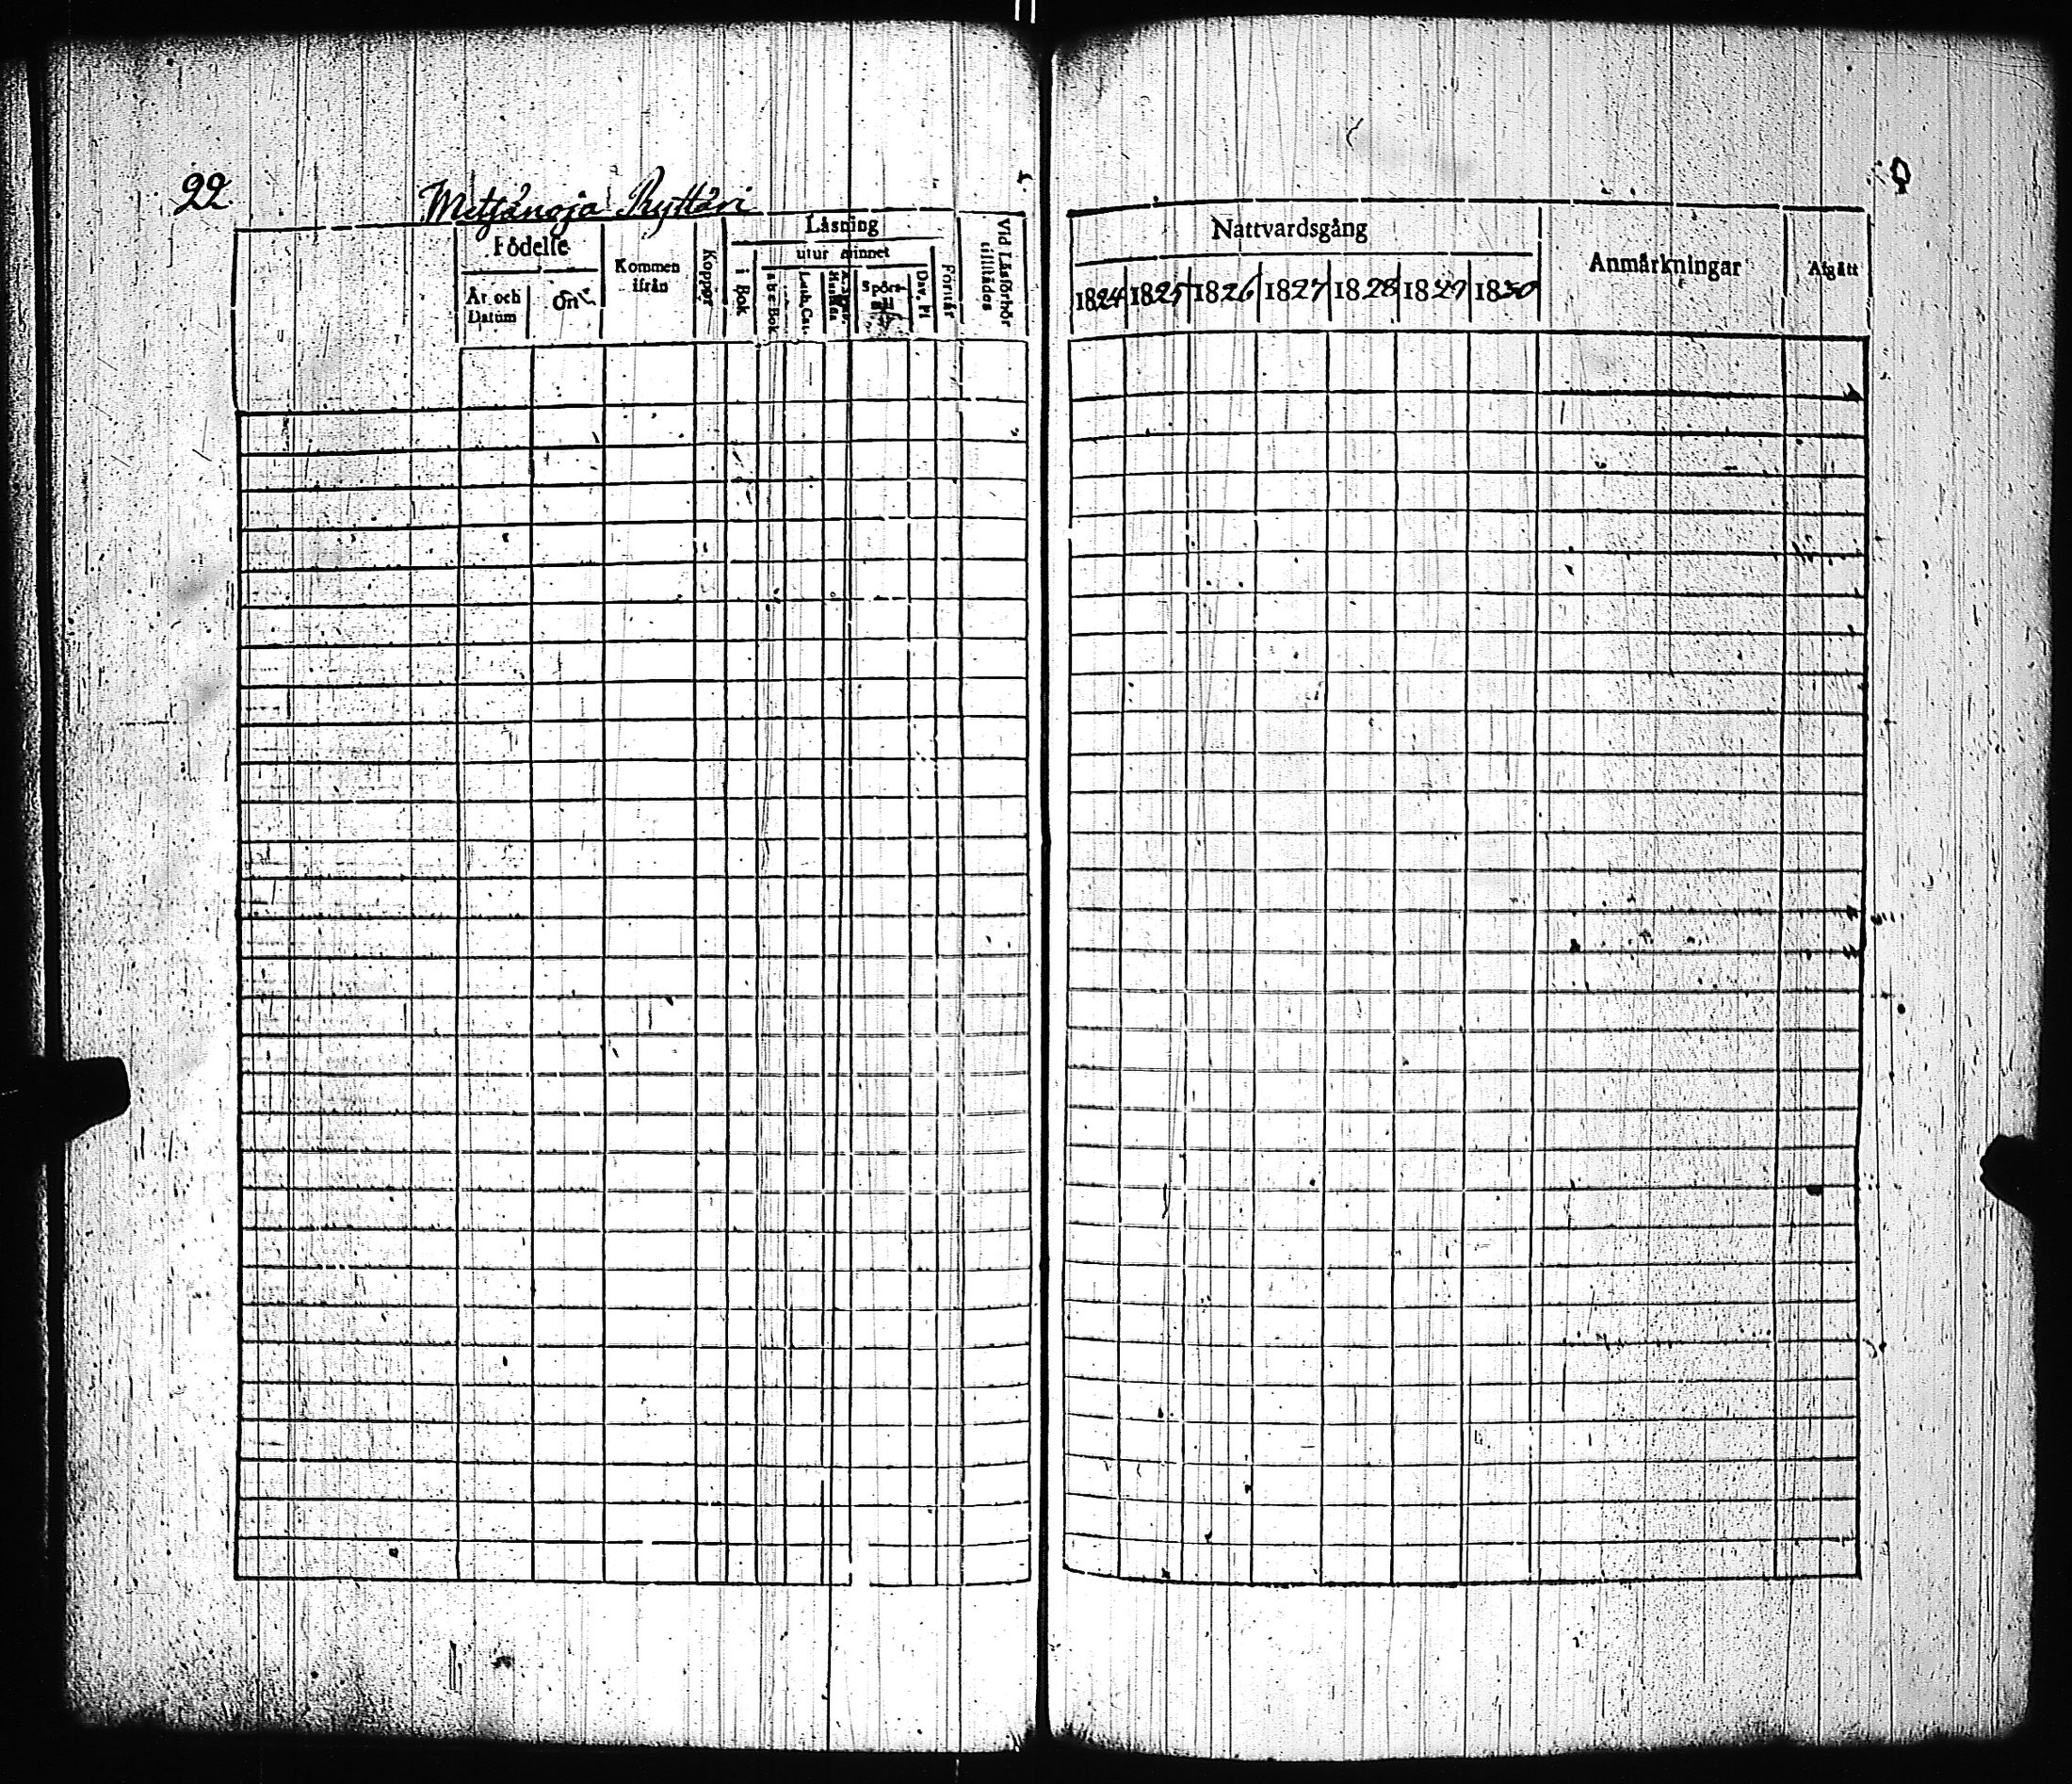 22.
Metsänoja Ryttäri
Födelse
År och Datum
Ort
Kommen ifrån
Koppor
Läsning
utur minnet
i Bok
a b c Bok
Luth. Cat.
Spörs-
Dav. Ps
Förstår
Vid Läsförhör tillstädes
Nattvardsgång
1824 1825 1826 1827 1828 1829 1830
Anmärkningar
Afgått